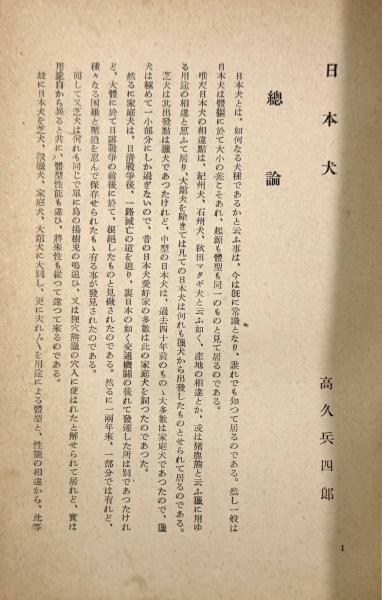 日本犬
高久兵四郎
總論
日本犬とは、如何なる犬種であるかと云ふ事は、今は既に常識となり、誰れでも知つて居るのである。然し一般は
日本犬は體軀に於て大小の差こそあれ、起源も體型も同一のものと見て居るのである。
唯だ日本犬の相違點は、紀州犬、石州犬、秋田マタギ犬と云ふ如く、產地の相違とか、或は猪鹿熊と云ふ獵に用ゆ
る用途の相違と思ふて居り、大館犬を除きては凡ての日本犬は何れも獵犬から出發したものとせられて居るのである。
芝犬は其出發點は獵犬であつたけれど、中型の日本犬は、過去四十年前のものゝ大多數は家庭犬であつたので、獵
犬は極めて一小部分にしか過ぎないので、昔の日本犬愛好家の多數は此の家庭犬を飼つたのであつた。
然るに家庭犬は、日淸戰爭後、一路滅亡の道を迎り、裏日本の如く交通機關の後れて發達した所は別であつたけれ
ど、大體に於て日露戰爭の前後に於て、根絕したものと見做されたのである。然るに一兩年來、一部分では有れど、
種々なる困難と壓迫を忍んで保存せられたもゝ有る事が發見されたのである。
而して又芝犬は何れも同じで單に鳥の揚樹兎の鳴追ひ、又は狸穴熊獵の穴入に使はれたと解せられて居れど、實は
用途自から異ると共に、體型性能も違ひ、將來性も從つて違つて來るのである。
玆に日本犬を芝犬、獵獵犬、家庭犬、大館犬に大別し、更に夫れ〲を用途による體型と、性能の相違から、此等
1